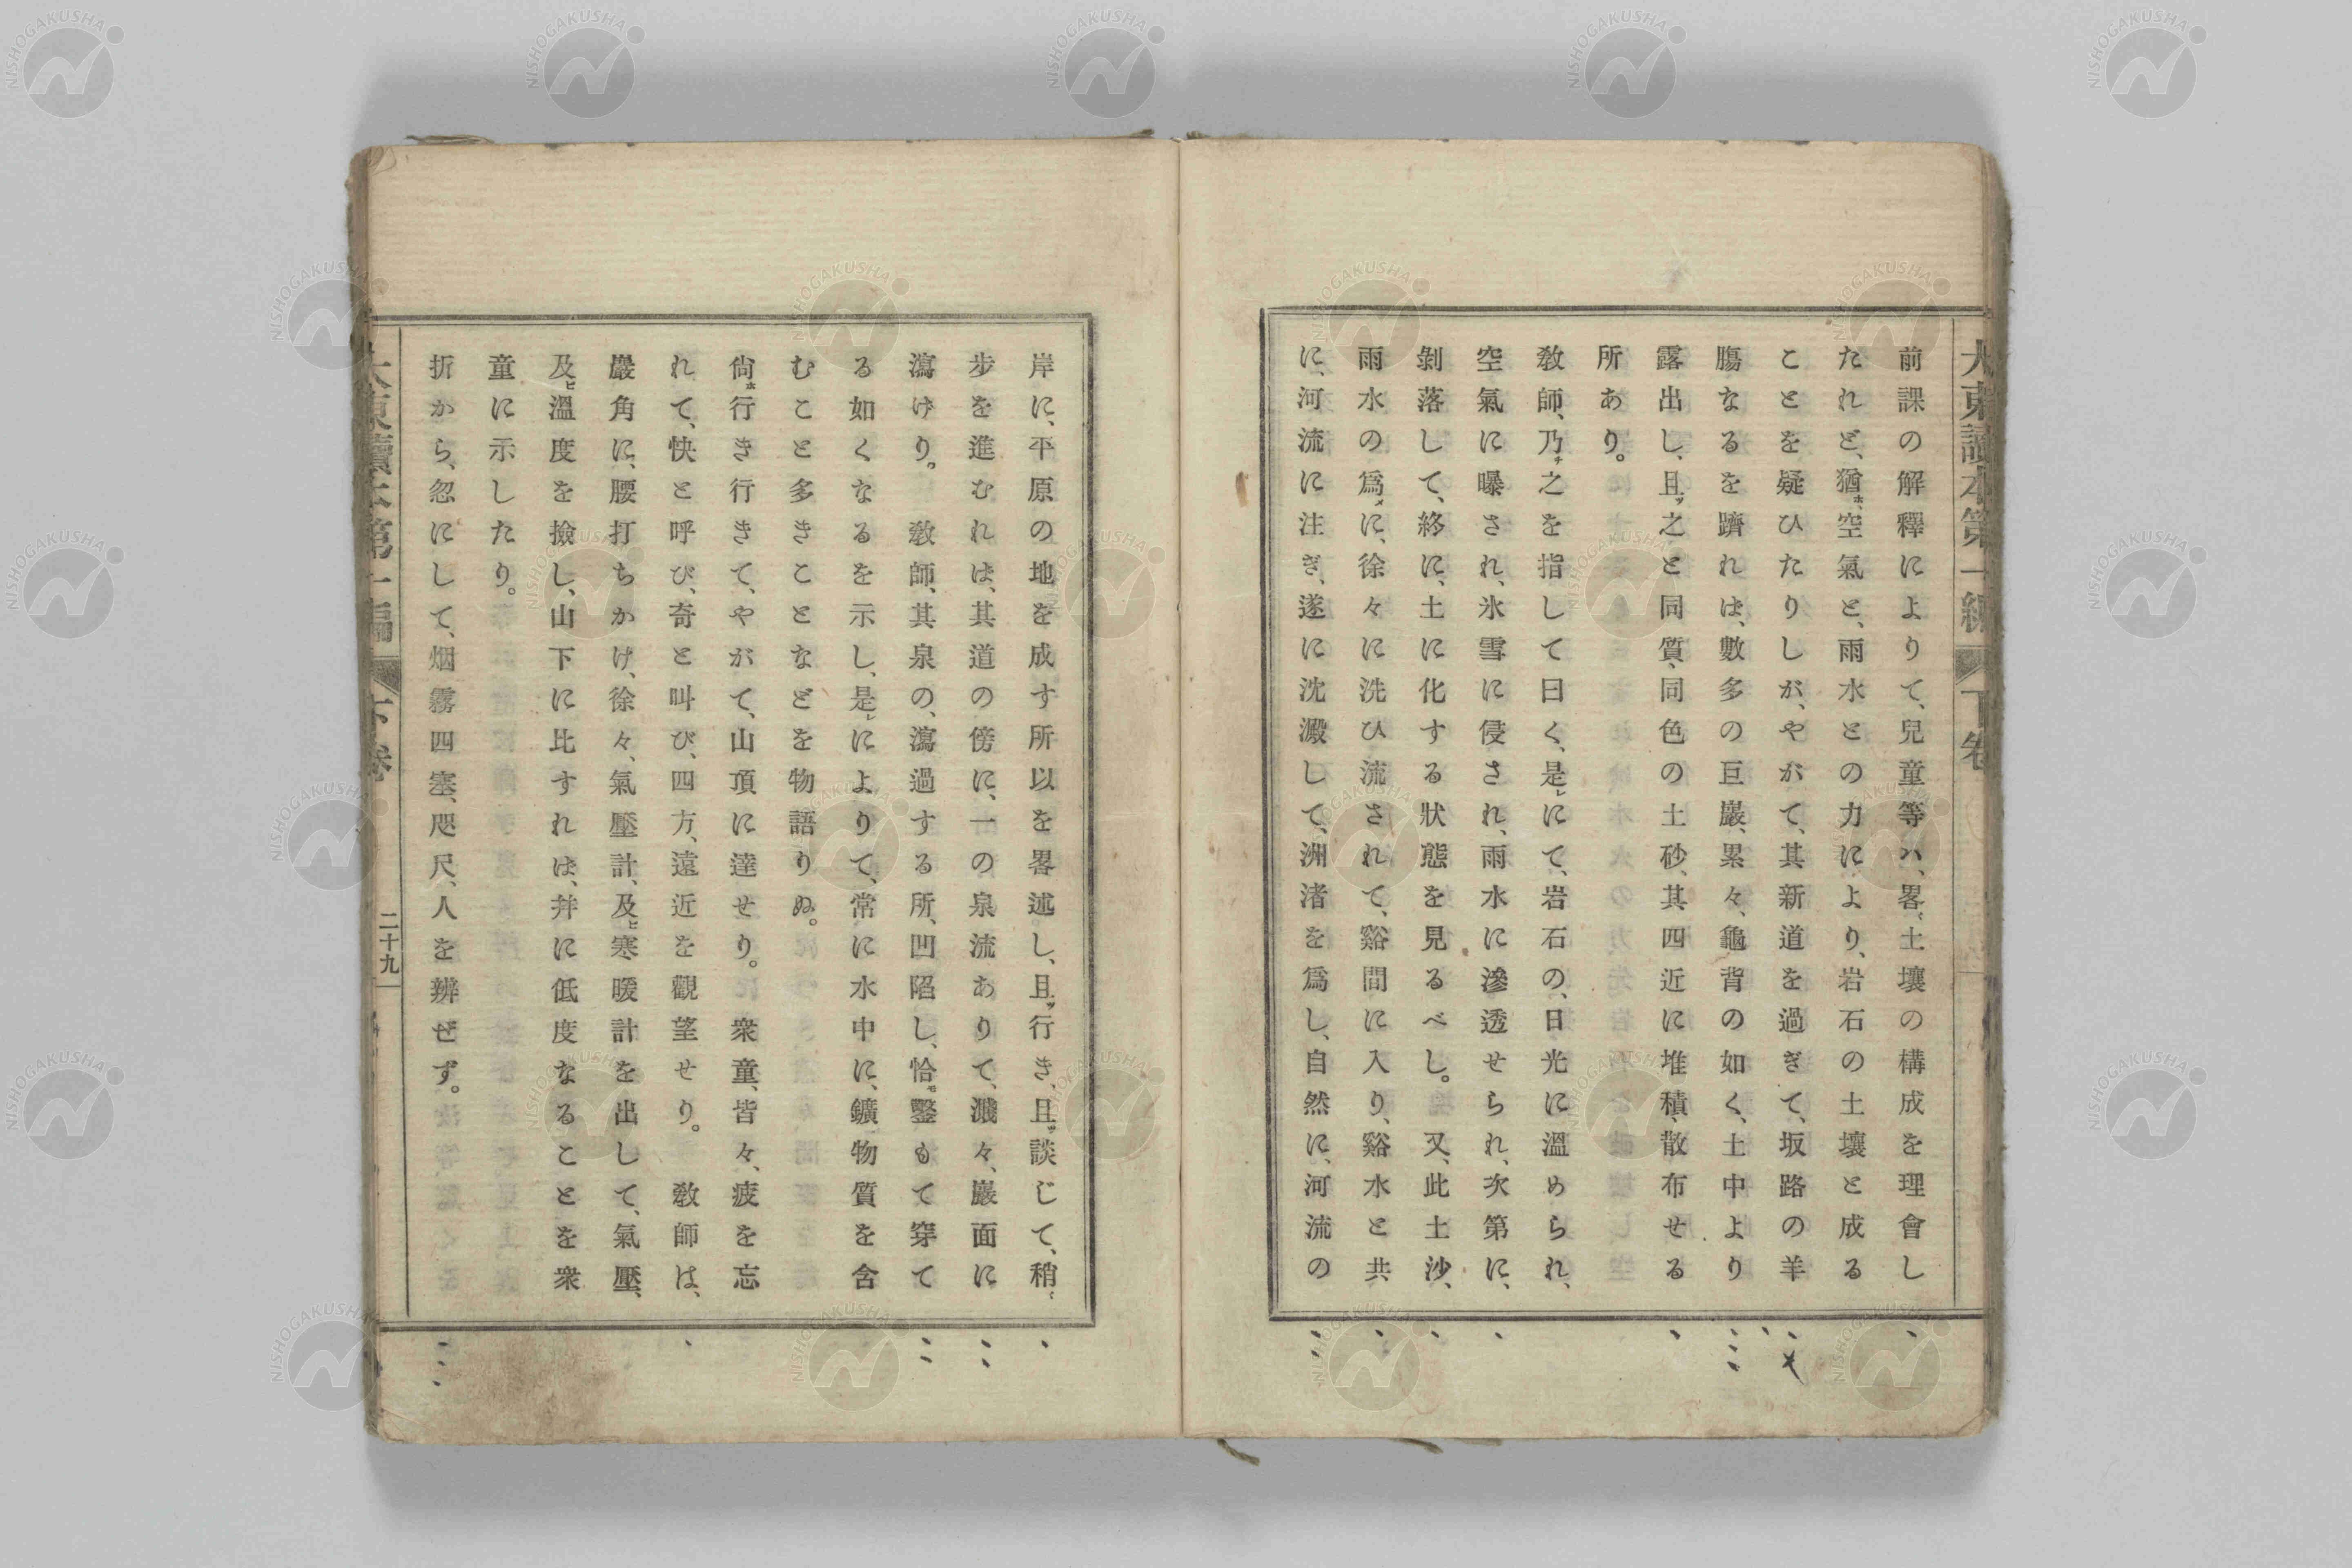 大東讀本第一編 下卷
前課の解釋によりて、兒童等ハ、畧ゞ土壤の構成を理會し
たれど、猶ホ空氣と、雨水との力により、岩石の土壤と成る
ことを疑ひたりしが、やがて、其新道を過ぎて、坂路の羊
膓なるを躋れは、數多の巨巖、累々、龜背の如く、土中より
露出し、且ッ之と同質、同色の土砂、其四近に堆積、散布せる
所あり。
敎師、乃チ之を指して曰く、是レにて、岩石の、日光に溫められ、
空氣に曝され、氷雪に侵され、雨水に滲透せられ、次第に、
剝落して、終に、土に化する狀態を見るべし。又、此土沙、
雨水の爲メに、徐々に洗ひ流されて、谿間に入り、谿水と共
に、河流に注ぎ、遂に沈澱して、洲渚を爲し、自然に、河流の
岸に、平原の地を成す所以を畧述し、且ッ行き、且ッ談じて、稍ゞ
步を進むれは、其道の傍に、一の泉流ありて、濺々、巖面に
瀉けり。敎師、其泉の、瀉過する所、凹陷し、恰モ鑿もて穿て
る如くなるを示し、是レによりて、常に水中に、鑛物質を含
むこと多きことなどを物語りぬ。
尙ホ行き行きて、やがて、山頂に達せり。衆童、皆々、疲を忘
れて、快と呼び、奇と叫び、四方、遠近を觀望せり。敎師は、
巖角に、腰打ちかけ、徐々、氣壓計、及ビ寒暖計を出して、氣壓、
及ビ溫度を撿し、山下に比すれは、幷に低度なることを衆
童に示したり。
折から、忽にして、烟霧四塞、咫尺、人を辨ぜず。
大東讀本第一編 下卷 二十九
NISHOGAKUSHA